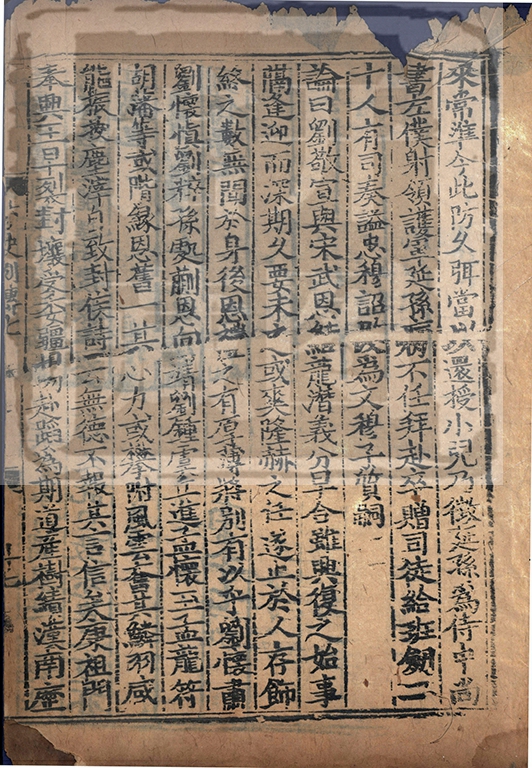 來常準今此防久弭當以還授小兒乃徵延孫爲侍中尚
書左僕射領護軍延孫病不任拜赴卒贈司徒給班劔二
十人有司奏謚忠穆詔改爲文穆子質嗣
論曰劉敬宣與宋武恩結龍潛義分早合雖興復之始事
藉逢迎而深期久要未之或爽隆赫之任遂止於人存飾
終之數無聞於身後恩禮之有厚薄將別有以乎劉懷肅
劉懷慎劉粹孫處蒯恩向靖劉鍾虞丘進孟懷玉孟龍符
胡藩等或階緣恩舊一其心力或攀附風雲奮其鱗羽咸
能振拔塵滓自致封侯詩云無德不報其言信矣康祖門
奉興王早裂封壤受委疆埸赴蹈爲期道産樹績漢南歷